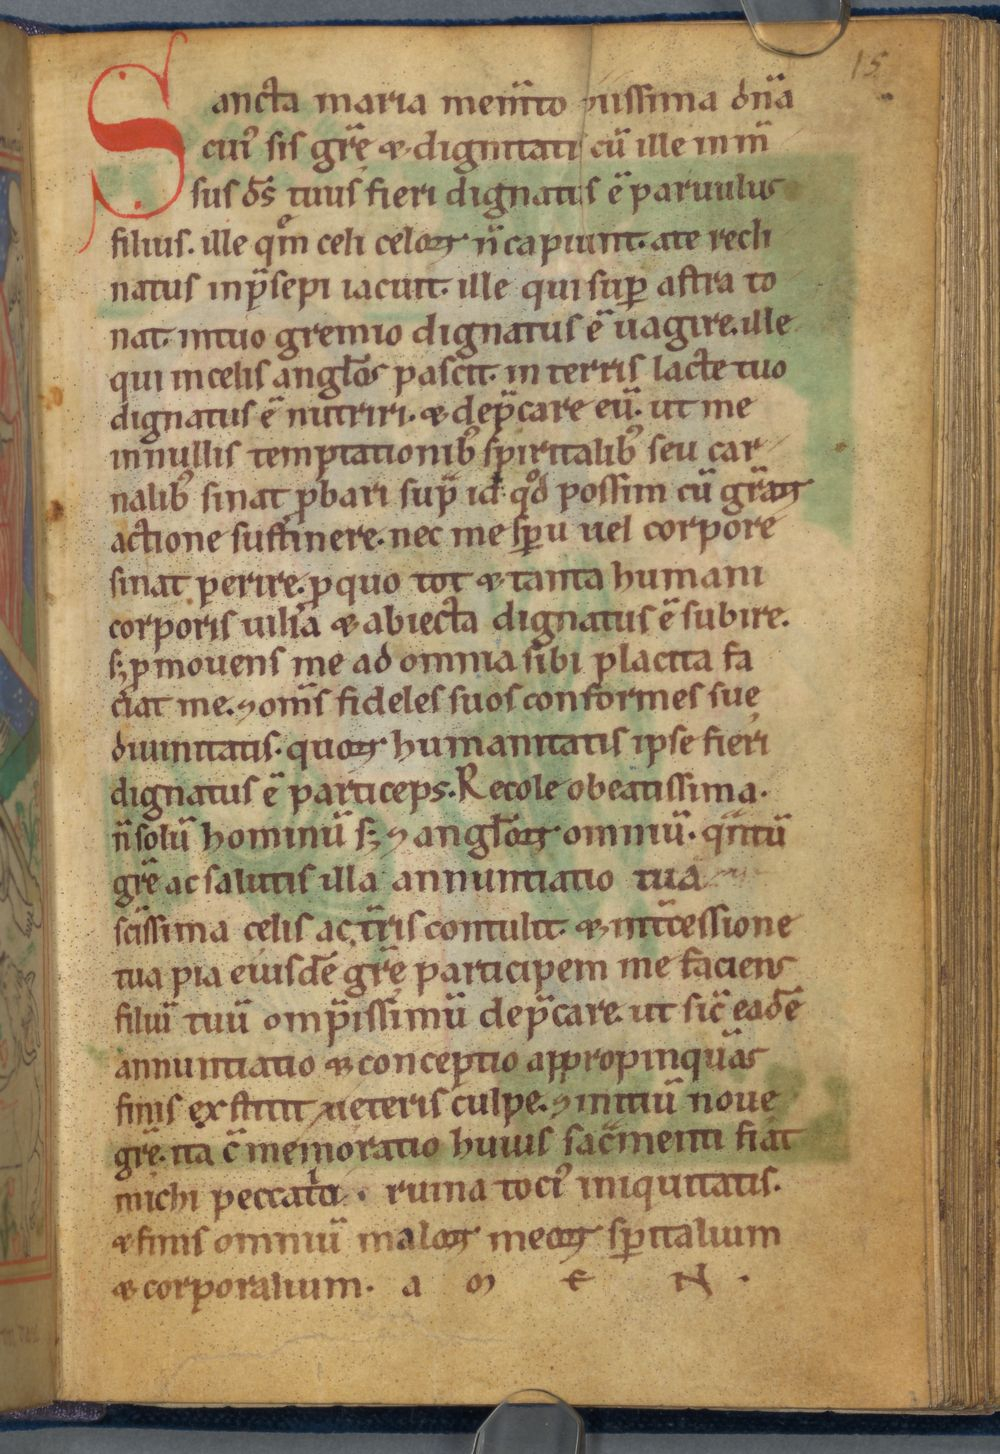 15
Sancta maria mem̄to piissima dn̄a
cui᷒ sis gr̄e & dignitati cū ille inm̄
sus ds̄ tuus fieri dignatus ē paruulus
filius. ille qem celi celoꝝ n̄ capiunt. ate recli
natus inp̄sepi iacuit. ille qui suꝑ astra to
nat. intuo gremio dignatus ē uagire. ille
qui incelis angl̄os pascit. in terris lacte tuo
dignatus ē nutriri. & dep̄care eū. ut me
innullis temptationib᷒ spiritalib᷒ seu car
nalib᷒ sinat ꝓbari sup̄ id qd̊ possim cū gr̄aꝝ
actione sustinere. nec me sp̄u uel corpore
sinat perire. ꝓ quo tot & tanta humani
corporis uilia & abiecta dignatus ē subire.
sꝫ ꝓmouens me ad omnia sibi placita fa
ciat me. ⁊ om̄s fideles suos conformes sue
diuinitatis. quoꝝ humanitatis ipse fieri
dignatus ē particeps. Recole obeatissima.
n̄ solū hominū sꝫ ⁊ angl̄oꝝ omniū. qn̄tū
gr̄e ac salutis illa annuntiatio tua
scīssima celis ac tr̄is contulit. & int̄cessione
tua pia eiusdē gr̄e participem me faciens
filiū tuū omp̄issimū dep̄care. ut sic̄ eadē
annuntiatio & conceptio appropinquās
finis exstitit ueteris culpe. ⁊ initiū noue
gr̄e. ita c̄ memoratio huius sac̄menti fiat
michi peccatori. ruina toci᷒ iniquitatis.
& finis omniū maloꝝ meoꝝ sp̄italium
& corporalium. a m e N .